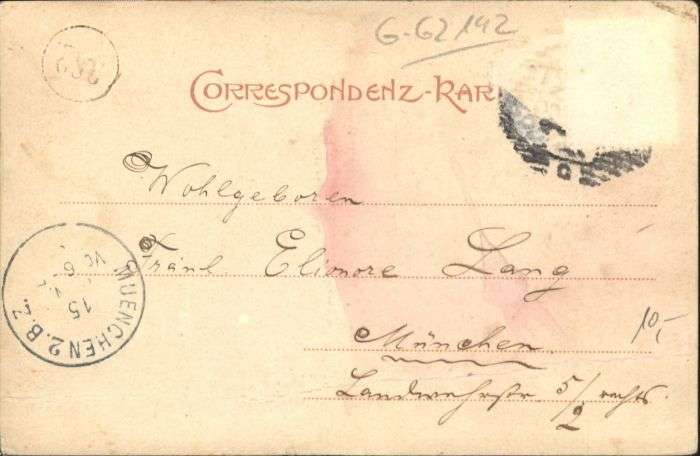 G-62142
282
CORRESPONDENZ-KAR
Wohlgeboren
Fräul. Elionore Lang
München
Landwehrstr. 5/2 rechts
10,-
MUENCHEN 2.B.Z.
15